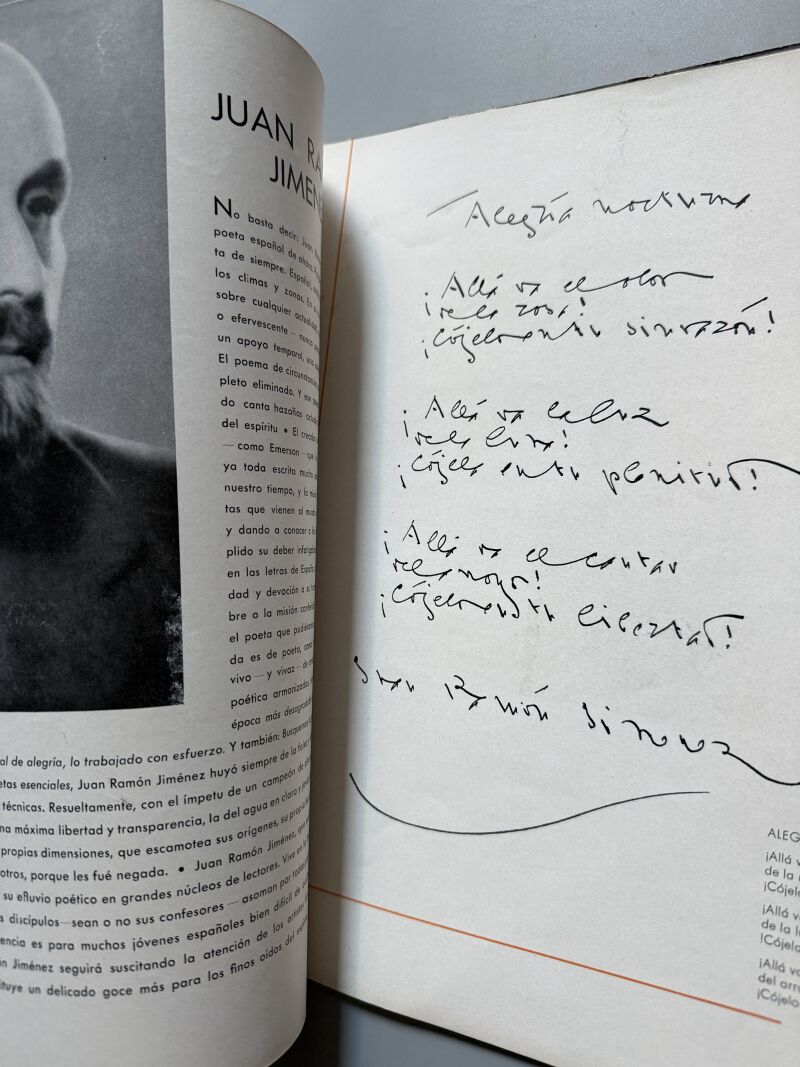 JUAN RA
JIMEN
No basta decir: Juan
poeta español de ahora.
ta de siempre. Español,
los climas y zonas. En
sobre cualquier actualidad
o efervescente — nunca
un apoyo temporal, una
El poema de circunstancias
pleto eliminado. Y ese
do canta hazañas
del espíritu • El creador
— como Emerson — que
ya toda escrita mucho
nuestro tiempo, y la
tas que vienen al mundo
y dando a conocer a los
plido su deber
en las letras de España,
dad y devoción a su
bre a la misión
el poeta que
da es de poeta, como
vivo — y vivaz — de
poética armonizadas,
época más
al de alegría, lo trabajado con esfuerzo. Y también: Busquemos
etas esenciales, Juan Ramón Jiménez huyó siempre de la falsa
técnicas. Resueltamente, con el ímpetu de un campeón de
na máxima libertad y transparencia, la del agua en claro y
propias dimensiones, que escamotea sus orígenes, su propia
otros, porque les fué negada. • Juan Ramón Jiménez, que
su efluvio poético en grandes núcleos de lectores. Vive en la
s discípulos — sean o no sus confesores — asoman por todas
encia es para muchos jóvenes españoles bien difícil de
ón Jiménez seguirá suscitando la atención de los artistas
tituye un delicado goce más para los finos oídos del
Alegría nocturna
¡Allá va el olor
de la rosa!
¡Cójelo en tu sinrazón!
¡Allá va la luz
de la luna!
¡Cójela en tu plenitud!
¡Allá va el cantar
del arroyo!
¡Cójelo en tu libertad!
Juan Ramón Jiménez
ALEG
¡Allá v
de la r
¡Cójelo
¡Allá v
de la l
¡Cójela
¡Allá va
del arro
¡Cójelo